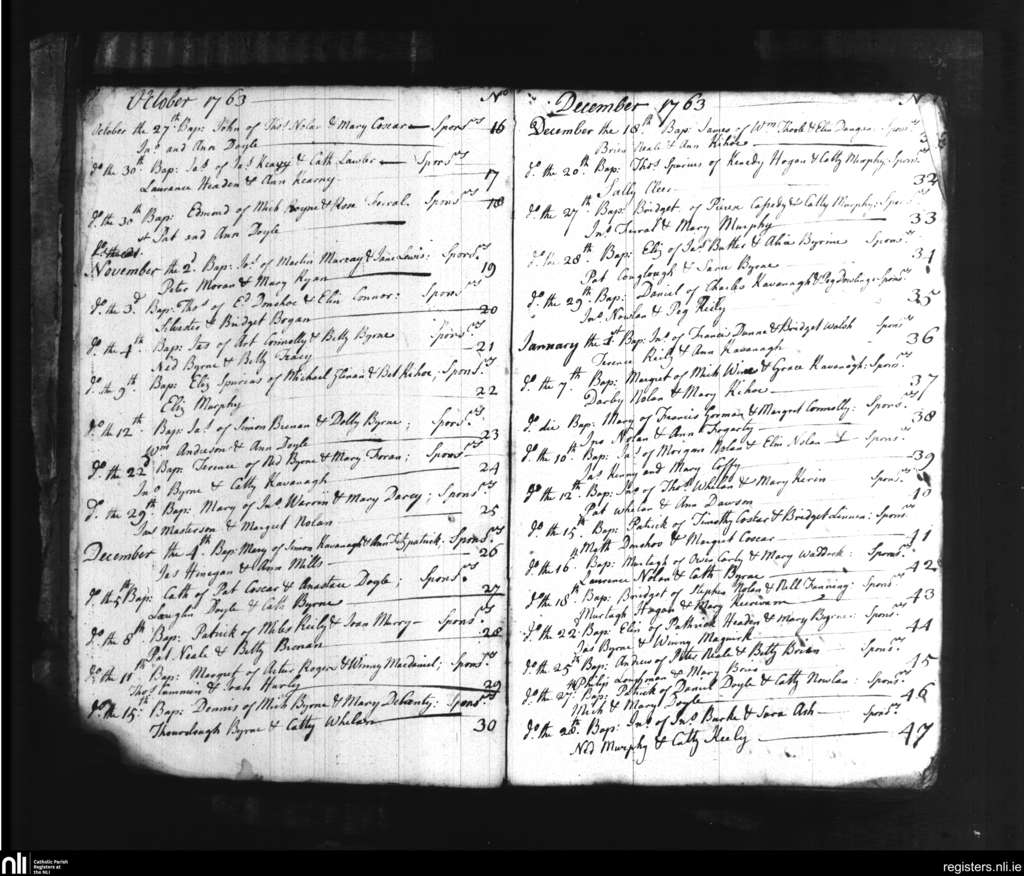 October 1763 No
October the 27th Bap: John of Thos Nolan & Mary Coscar Sponsrs 16
Jno and Ann Doyle
do the 30th Bap: Jas of Jas Keary & Cath Lawler Sponsrs
Laurance Headen & Ann Kearny 17
do the 30th Bap: Edmond of Mich Coyne & Rose Ferral. Sponsrs 18
Pat and Ann Doyle
November the 2d Bap: Jas of Martin Murray & Jane Lewis: Sponsrs
Peter Moran & Mary Ryan 19
do the 3d Bap: Thos of Ed Donohoe & Elin Connor: Sponsrs
Silvester & Bridget Brogan 20
do the 4th Bap: Jas of Art Connolly & Betty Byrne Sponsrs
Ned Byrne & Betty Tracy 21
do the 9th Bap: Eliz Spurius of Michael & Bet Kehoe; Sponsrs
Eliz Murphy 22
do the 12th Bap: Jas of Simon Brenan & Dolly Byrne; Sponsrs
Wm Anderson & Ann Doyle 23
do the 22d Bap: Terence of Ned Byrne & Mary Foran; Sponsrs
Jno Byrne & Catty Kavanagh 24
do the 29th Bap: Mary of Jas Warrin & Mary Darcy; Sponsrs
Jas Masterson & Margret Nolan 25
December the 4th Bap: Mary of Simon Kavanagh & Ann Fitzpatrick. Sponsrs
Jas Finegan & Ann Mills 26
do the 5th Bap: Cath of Pat Coscar & Anastace Doyle; Sponsrs
Laughn Doyle & Cath Byrne 27
do the 8th Bap: Patrick of Miles Reily & Joan Murry Sponsrs
Pat Neale & Betty Brenan 28
do the 11th Bap: Margret of Artur Rogers & Winny Macdaniel; Sponsrs
Thos Cummin & Joan Hurley 29
do the 15th Bap: Dennis of Mich Byrne & Mary Delanty; Sponsrs
Thourolough Byrne & Catty Whelan 30
December 1763 N
December the 18th Bap: James of Wm Thork & Elin Dangen: Sponsrs
Brien Neale & Ann Kehoe 3
do the 20th Bap: Thos Spurius of Keaedy Hogan & Catty Murphy: Sponsrs
Sally Cleer 32
do the 27th Bap: Bridget of Pieren Cassedy & Catty Murphy: Spo
Jno Ferral & Mary Murphy 33
do the 28th Bap: Eliz of Jas Butler & Alice Byrine Sponsrs
Pat Conglough & Sara Byrne 34
do the 29th Bap: Daniel of Charles Kavanagh & Peg Dowling: Sponsrs
Jno Nowlan & Peg Reily 35
January the 1st Bap: Jno of Francis Dunne & Bridget Walsh Sponsrs
Terence Reily & Ann Kavanagh 36
do the 7th Bap: Margret of Mich & Grace Kavanagh: Sponsrs
Darby Nolan & Mary Kehoe 37
do die Bap: Mary of Francis Gorman & Margret Connolly: Sponsrs
Jno Nolan & Ann Fogarty 38
do the 10th Bap: Jas of Morgan Nolan & Elin Nolan Sponsrs
Jas Kenny and Mary Coffy 39
do the 12th Bap: Jno of Thos Whelan & Mary Kirin Sponsrs
Pat Whelan & Ann Dawson 40
do the 15th Bap: Patrick of Timothy Costar & Bridget Linnen: Sponsrs
Matt Donohoe & Margret Coscar 41
do the 16 Bap: Murtagh of Owen Carty & Mary Waddock: Sponsrs
Laurence Nolan & Cath Byrne 42
do the 18th Bap: Bridget of Stephen Nolan & Nell Finning Sponsrs
Murtagh Hagan & Mary 43
do the 22 Bap: Elin of Patrick Headen & Mary Byrne: Sponsrs
Jas Byrne & Winny Maguirk 44
do the 25th Bap: Andrew of Peter Neale & Betty Brien Sponsrs
Philip & Mary Brien 45
do the 27 Bap: Patrick of Daniel Doyle & Catty Nowlan: Sponsrs
Mick & Mary Doyle 46
do the 28th Bap: Jno of Jno Burke & Sara Ash Sponsrs
Ned Murphy & Catty Keely 47
nli Catholic Parish
Registers at
the NLI
registers.nli.ie